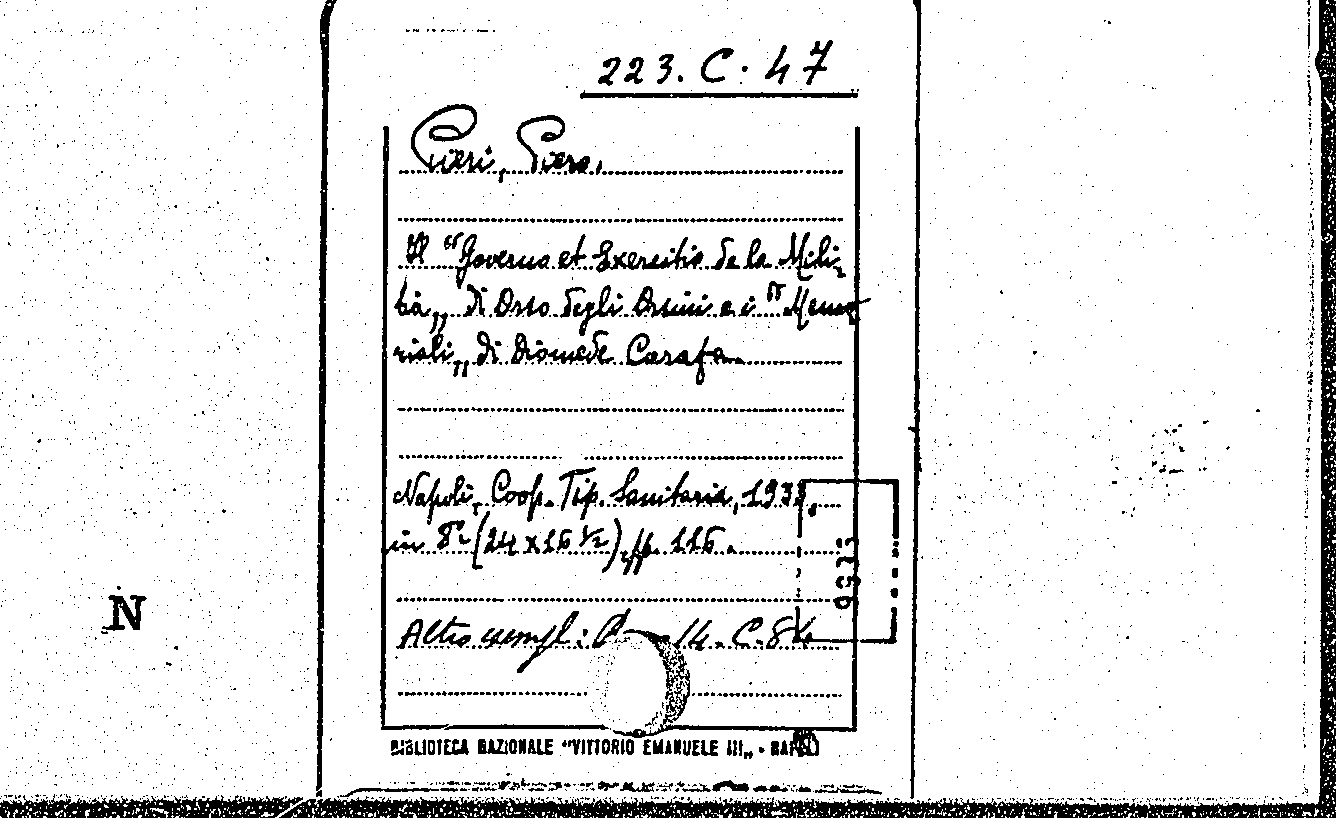 223. C. 47
Pieri, Piero.
Il "Governo et Exercitio de la Mili-
tia„ di Orso degli Orsini e i "Memo-
riali„ di Diomede Carafa.
Napoli, Coop. Tip. Sanitaria, 1933,
in 8º (24 x 16 ½), pp. 116.
Altro esempl: 14. C. 84
N
BIBLIOTECA NAZIONALE "VITTORIO EMANUELE III„ - NAPOLI